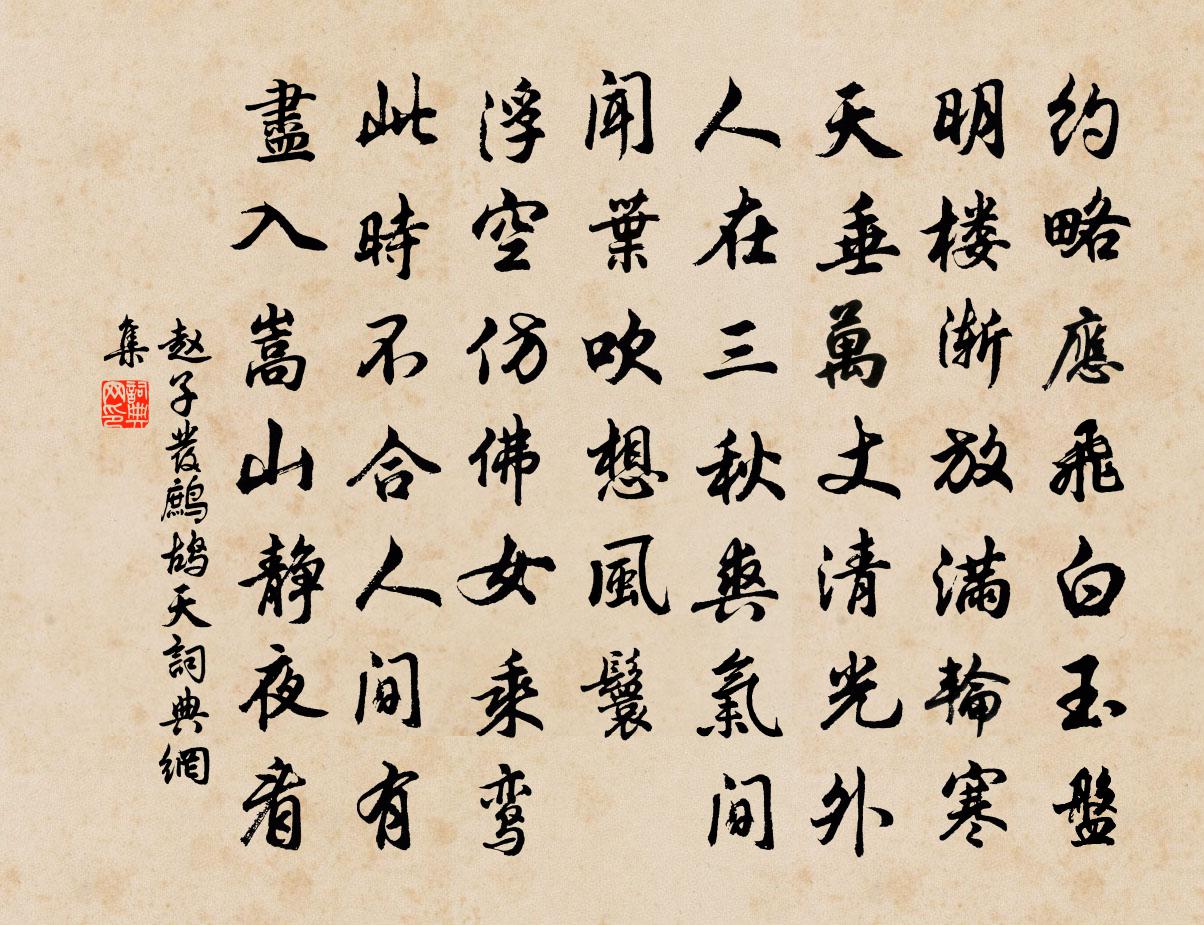 约略應飛白玉盤
明楼渐放滿輪寒
天垂萬丈清光外
人在三秋爽氣間
聞葉吹想風鬟
浮空仿佛女乘鸾
此時不合人間有
盡入嵩山静夜看
赵子發鹧鸪天詞典網
集
詞典网印